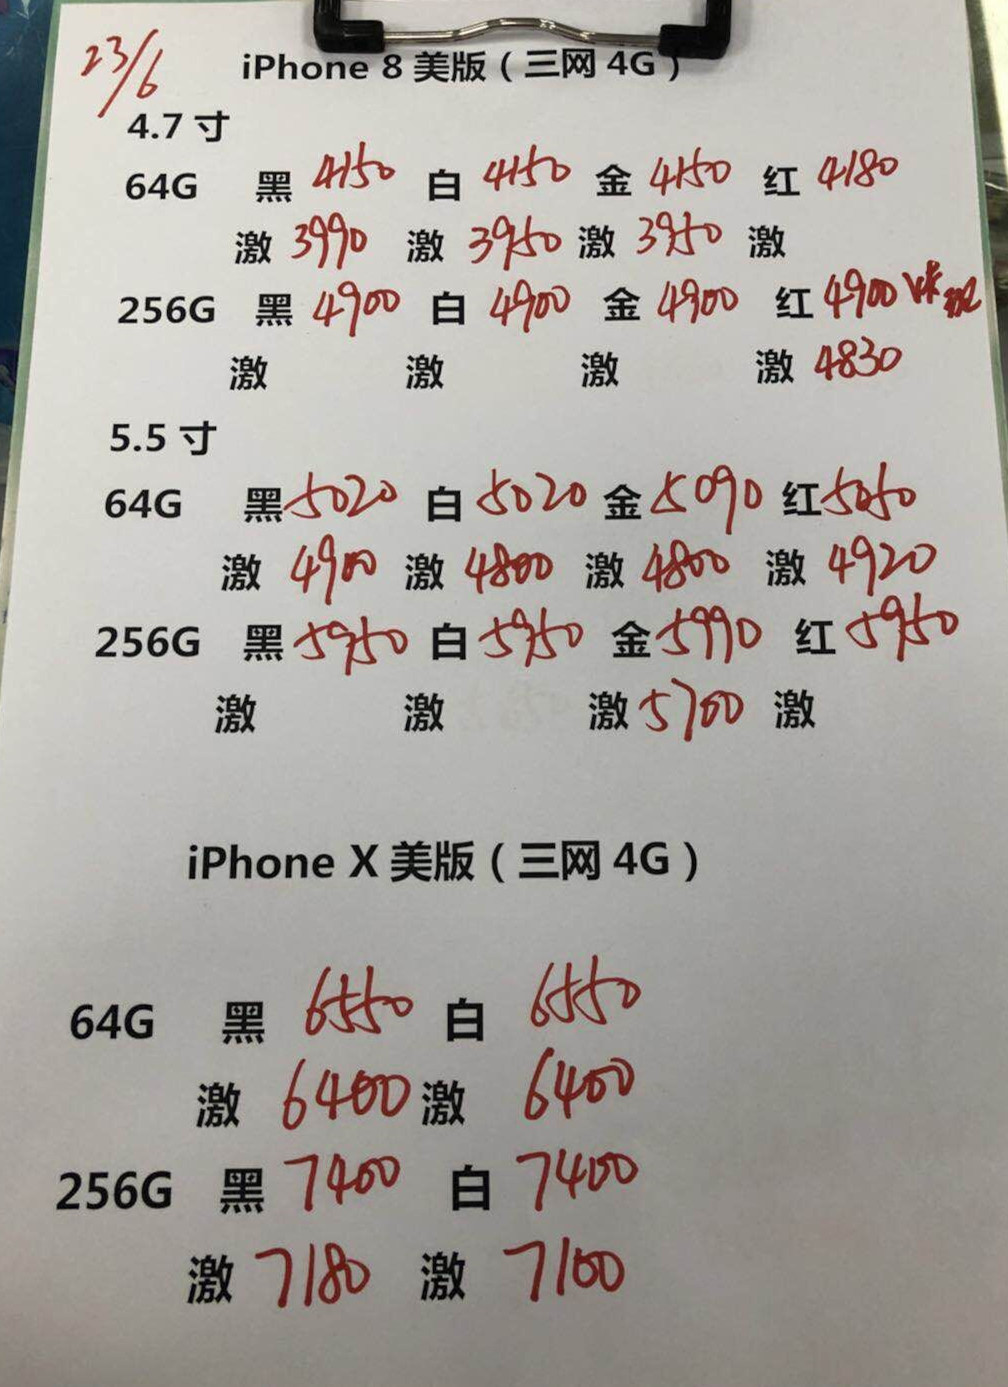 23/6
iPhone 8 美版（三网 4G）
4.7 寸
64G 黑 4150 白 4150 金 4150 红 4180
激 3990 激 3950 激 3950 激
256G 黑 4900 白 4900 金 4900 红 4900
激 激 激 激 4830
5.5 寸
64G 黑 5020 白 5020 金 5090 红 5050
激 4900 激 4800 激 4800 激 4920
256G 黑 5950 白 5950 金 5990 红 5950
激 激 激 5700 激
iPhone X 美版（三网 4G）
64G 黑 6550 白 6550
激 6400 激 6400
256G 黑 7400 白 7400
激 7180 激 7100